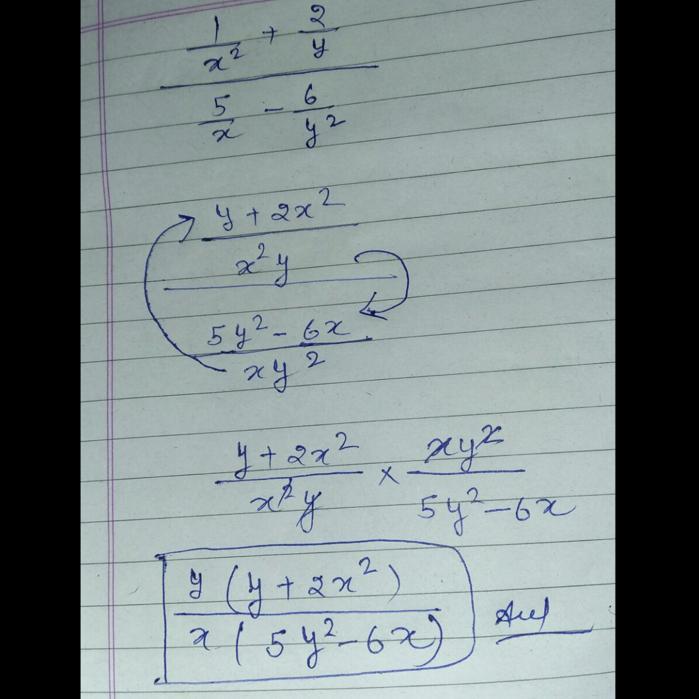 1/x² + 2/y
5/x - 6/y²
y + 2x²
x²y
5y² - 6x
xy²
y + 2x² / x²y × xy² / 5y² - 6x
y (y + 2x²)
x (5y² - 6x)
Ans